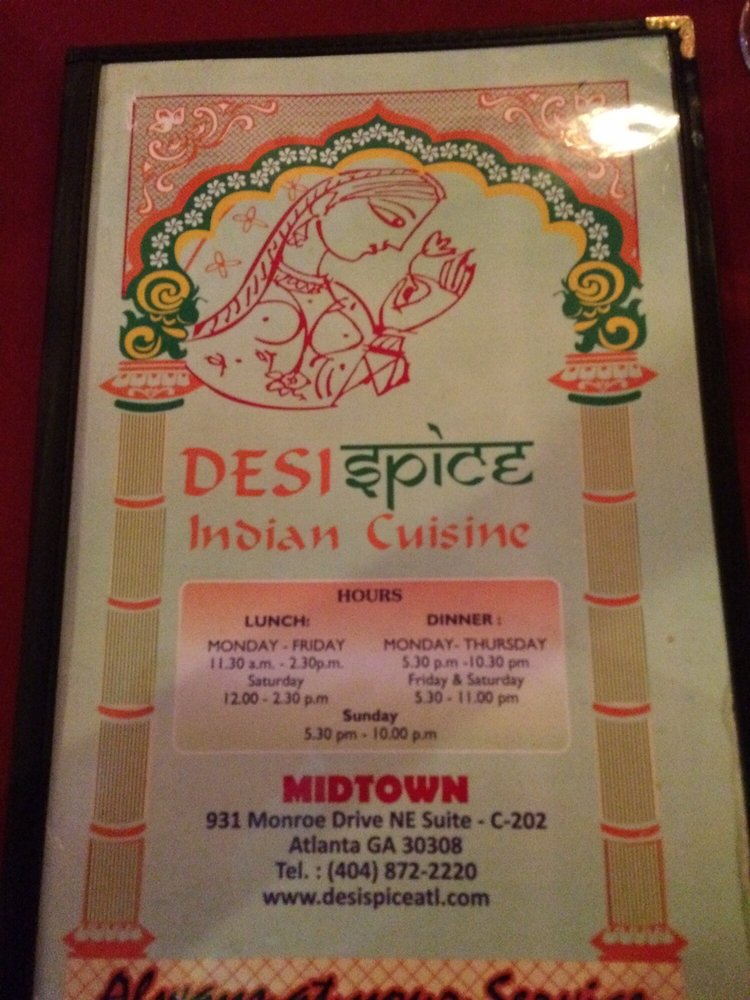 DESI SPICE
Indian Cuisine
HOURS
LUNCH:
MONDAY - FRIDAY
11.30 a.m. - 2.30p.m.
Saturday
12.00 - 2.30 p.m
DINNER :
MONDAY- THURSDAY
5.30 p.m -10.30 pm
Friday & Saturday
5.30 - 11.00 pm
Sunday
5.30 pm - 10.00 p.m
MIDTOWN
931 Monroe Drive NE Suite - C-202
Atlanta GA 30308
Tel. : (404) 872-2220
www.desispiceatl.com
Always at your Service